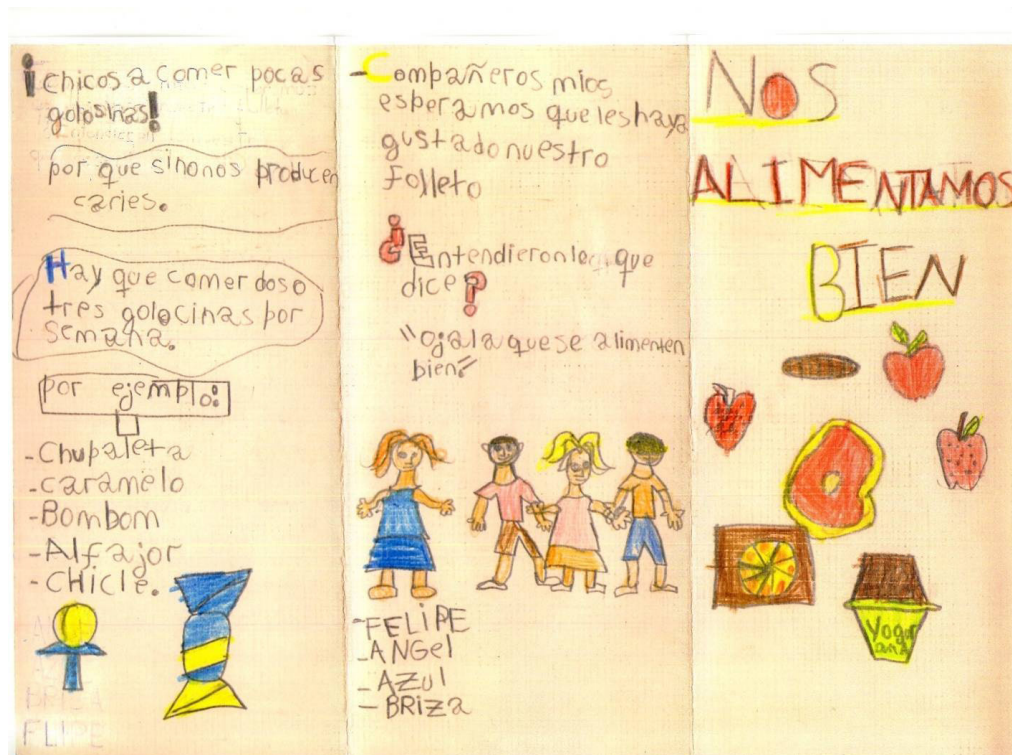 ¡Chicos a comer pocas
golosinas!
por que sinonos producen
caries.
Hay que comer doso
tres golocinas por
semana.
por ejemplo:
-Chupaleta
-caramelo
-Bombom
-Alfajor
-CHicle.
BRIZA
FLIPE
-Compañeros mios
esperamos que les haya
gustado nuestro
Folleto
¿Entendieron que
dice?
"ojala que se alimenten
bien"
-FELIPE
-ANGel
-AZUl
-BRIZa
NOS
ALIMENTAMOS
BIEN
Yogur